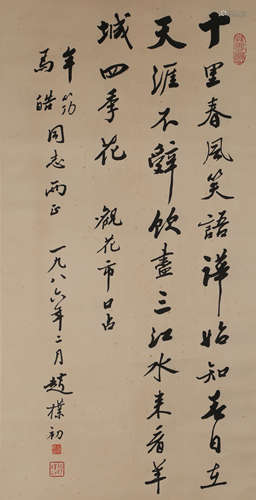 十里春风笑語譁始知春日在
天涯不辤飲盡三江水来看羊
城四季花 觀花市口占
年筠
馬皓同志两正
一九八六年二月趙樸初